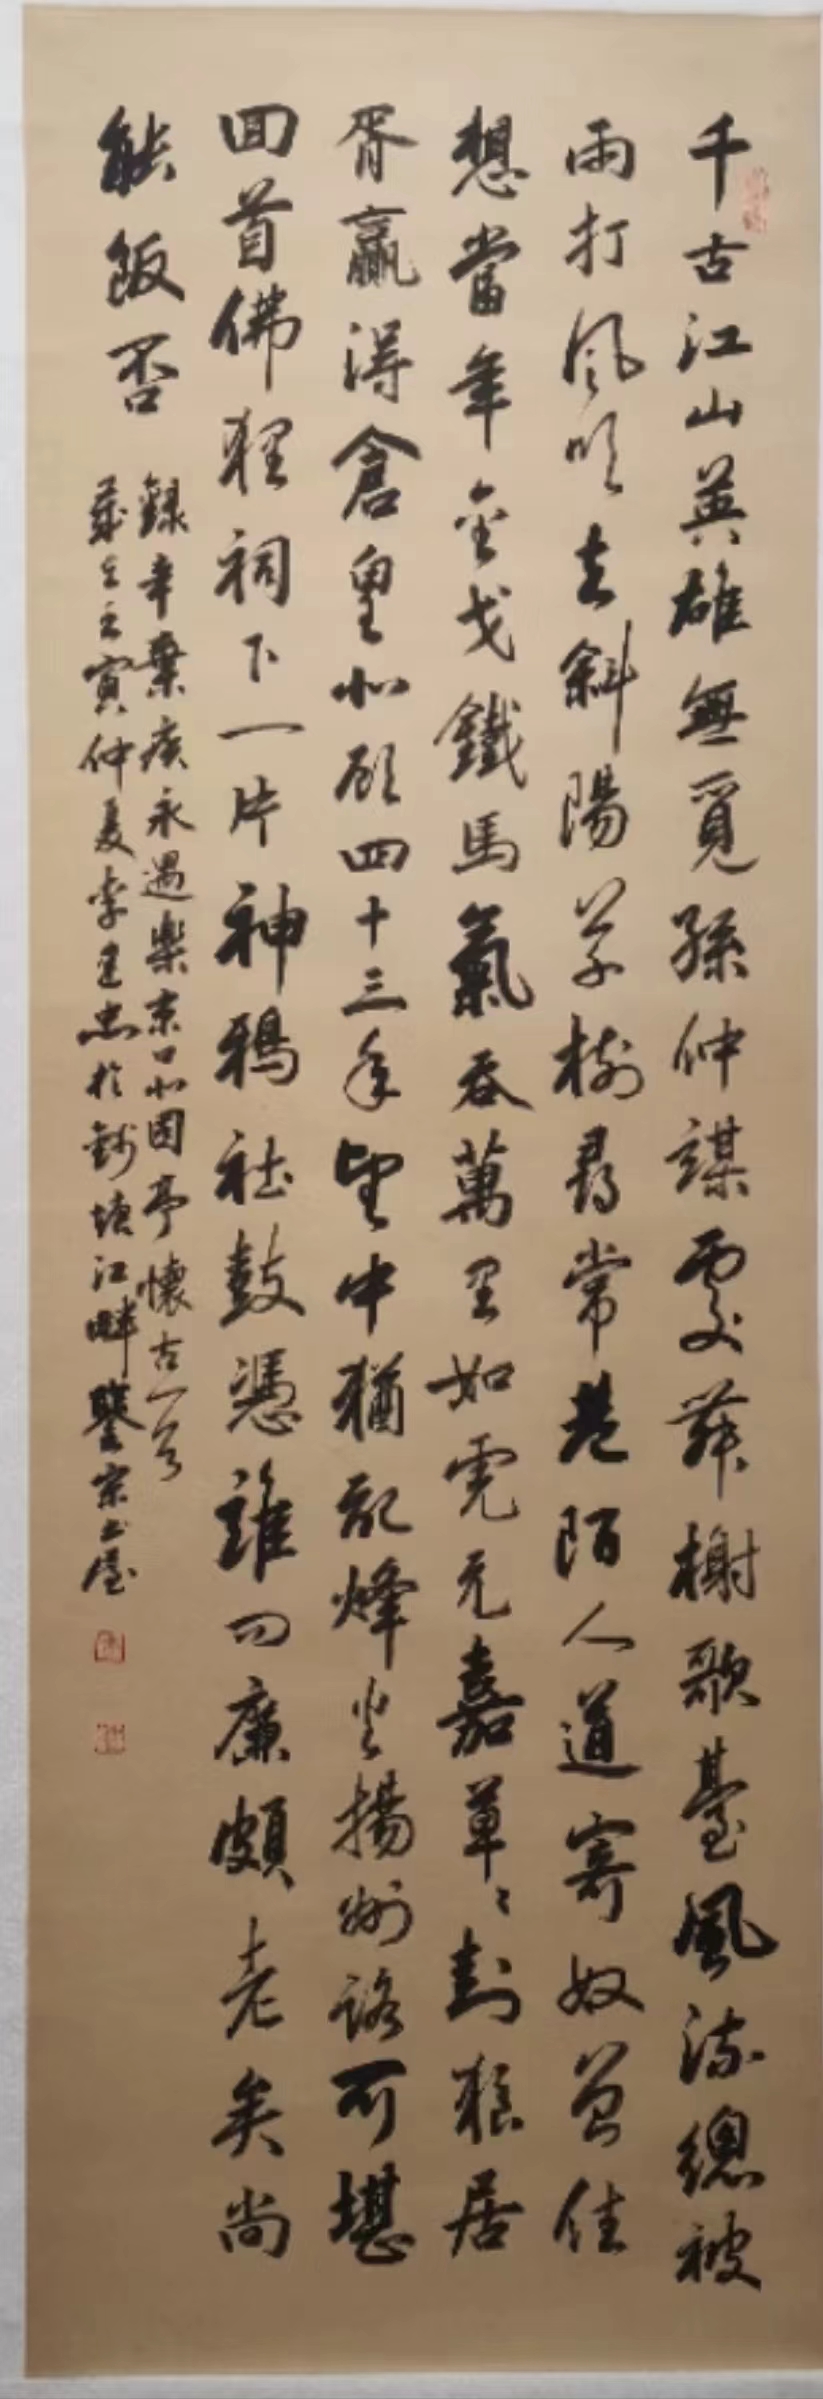 千古江山英雄無覓孫仲謀處舞榭歌臺風流總被
雨打風吹去斜陽草樹尋常巷陌人道寄奴曾住
想當年金戈鐵馬氣吞萬里如虎元嘉草々封狼居
胥贏得倉皇北顧四十三年望中猶記烽火揚州路可堪
回首佛狸祠下一片神鴉社鼓憑誰問廉頗老矣尚
能飯否
錄辛棄疾永遇樂京口北固亭懷古一首
歲在壬寅仲夏李忠於錢塘江畔鑒宗書屋